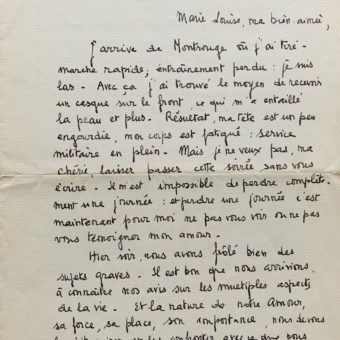 Marie Louise, ma bien-aimée,
J'arrive de Montrouge où j'ai tiré -
marche rapide ; entraînement perdu : je suis
las. Avec ça j'ai trouvé le moyen de recevoir
un casque sur le front, ce qui m'a entaillé
la peau et plus. Résultat, ma tête est un peu
engourdie, mon corps est fatigué : service
militaire en plein. Mais je ne veux pas, ma
chérie, laisser passer cette soirée sans vous
écrire. Il m'est impossible de perdre complète-
ment une journée : et perdre une journée c'est
maintenant pour moi ne pas vous voir ou ne pas
vous témoigner mon amour.
Hier soir, nous avons frôlé bien des
sujets graves. Il est bon que nous arrivions
à connaître nos avis sur les multiples aspects
de la vie. Et la nature de notre Amour,
sa force, sa place, son importance, nous devons